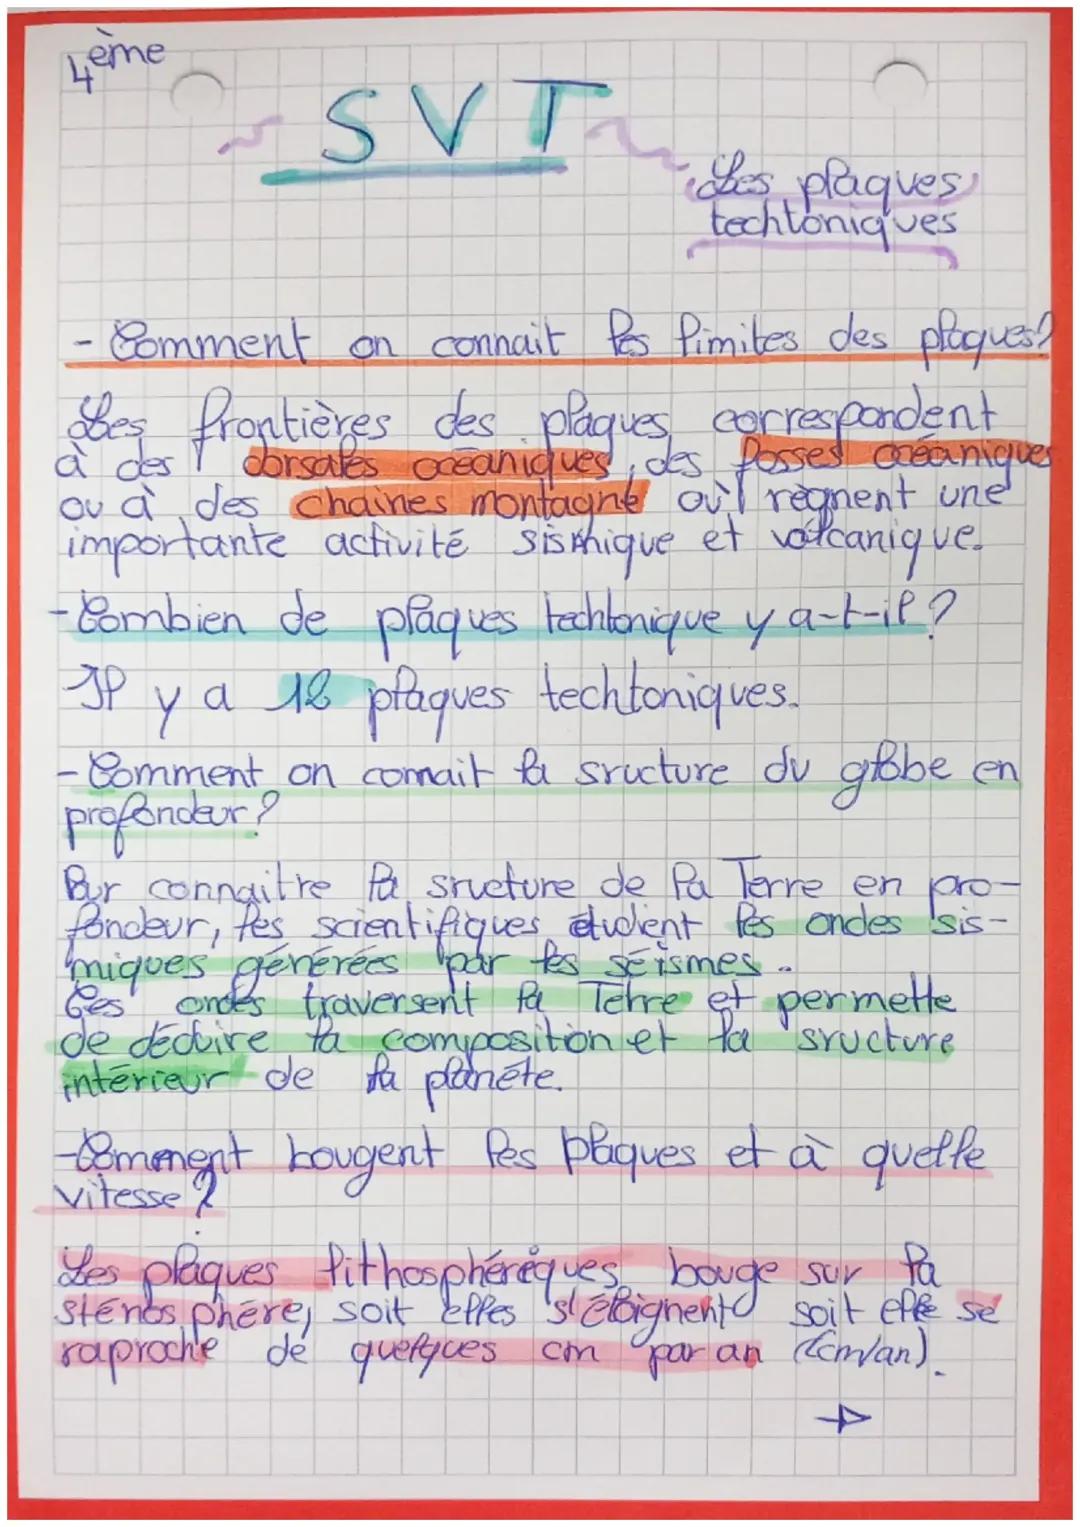 4ème
SVT
Les plaques
techtoniques
- Comment on connait les limites des plaques?
Les frontières des plaques correspondent
à des dorsales océaniques, des fosses océaniques
ou à des chaines montagne où règnent une
importante activité sismique et volcanique.
- Combien de plaques techtonique y a-t-il?
Il y a 12 plaques techtoniques.
- Comment on connait la sructure du globe en
profondeur?
Pour connaitre la sructure de la Terre en pro-
fondeur, les scientifiques étudient les ondes sis-
miques générées par les séismes.
Ces ondes traversent la Terre et permette
de déduire la composition et la sructure
intérieur de la planéte.
- Comment bougent les plaques et à quelle
vitesse?
Les plaques lithosphérèques bouge sur la
sténosphère, soit elles s'éloignent soit elle se
raproche de quelques cm par an (2cm/an).